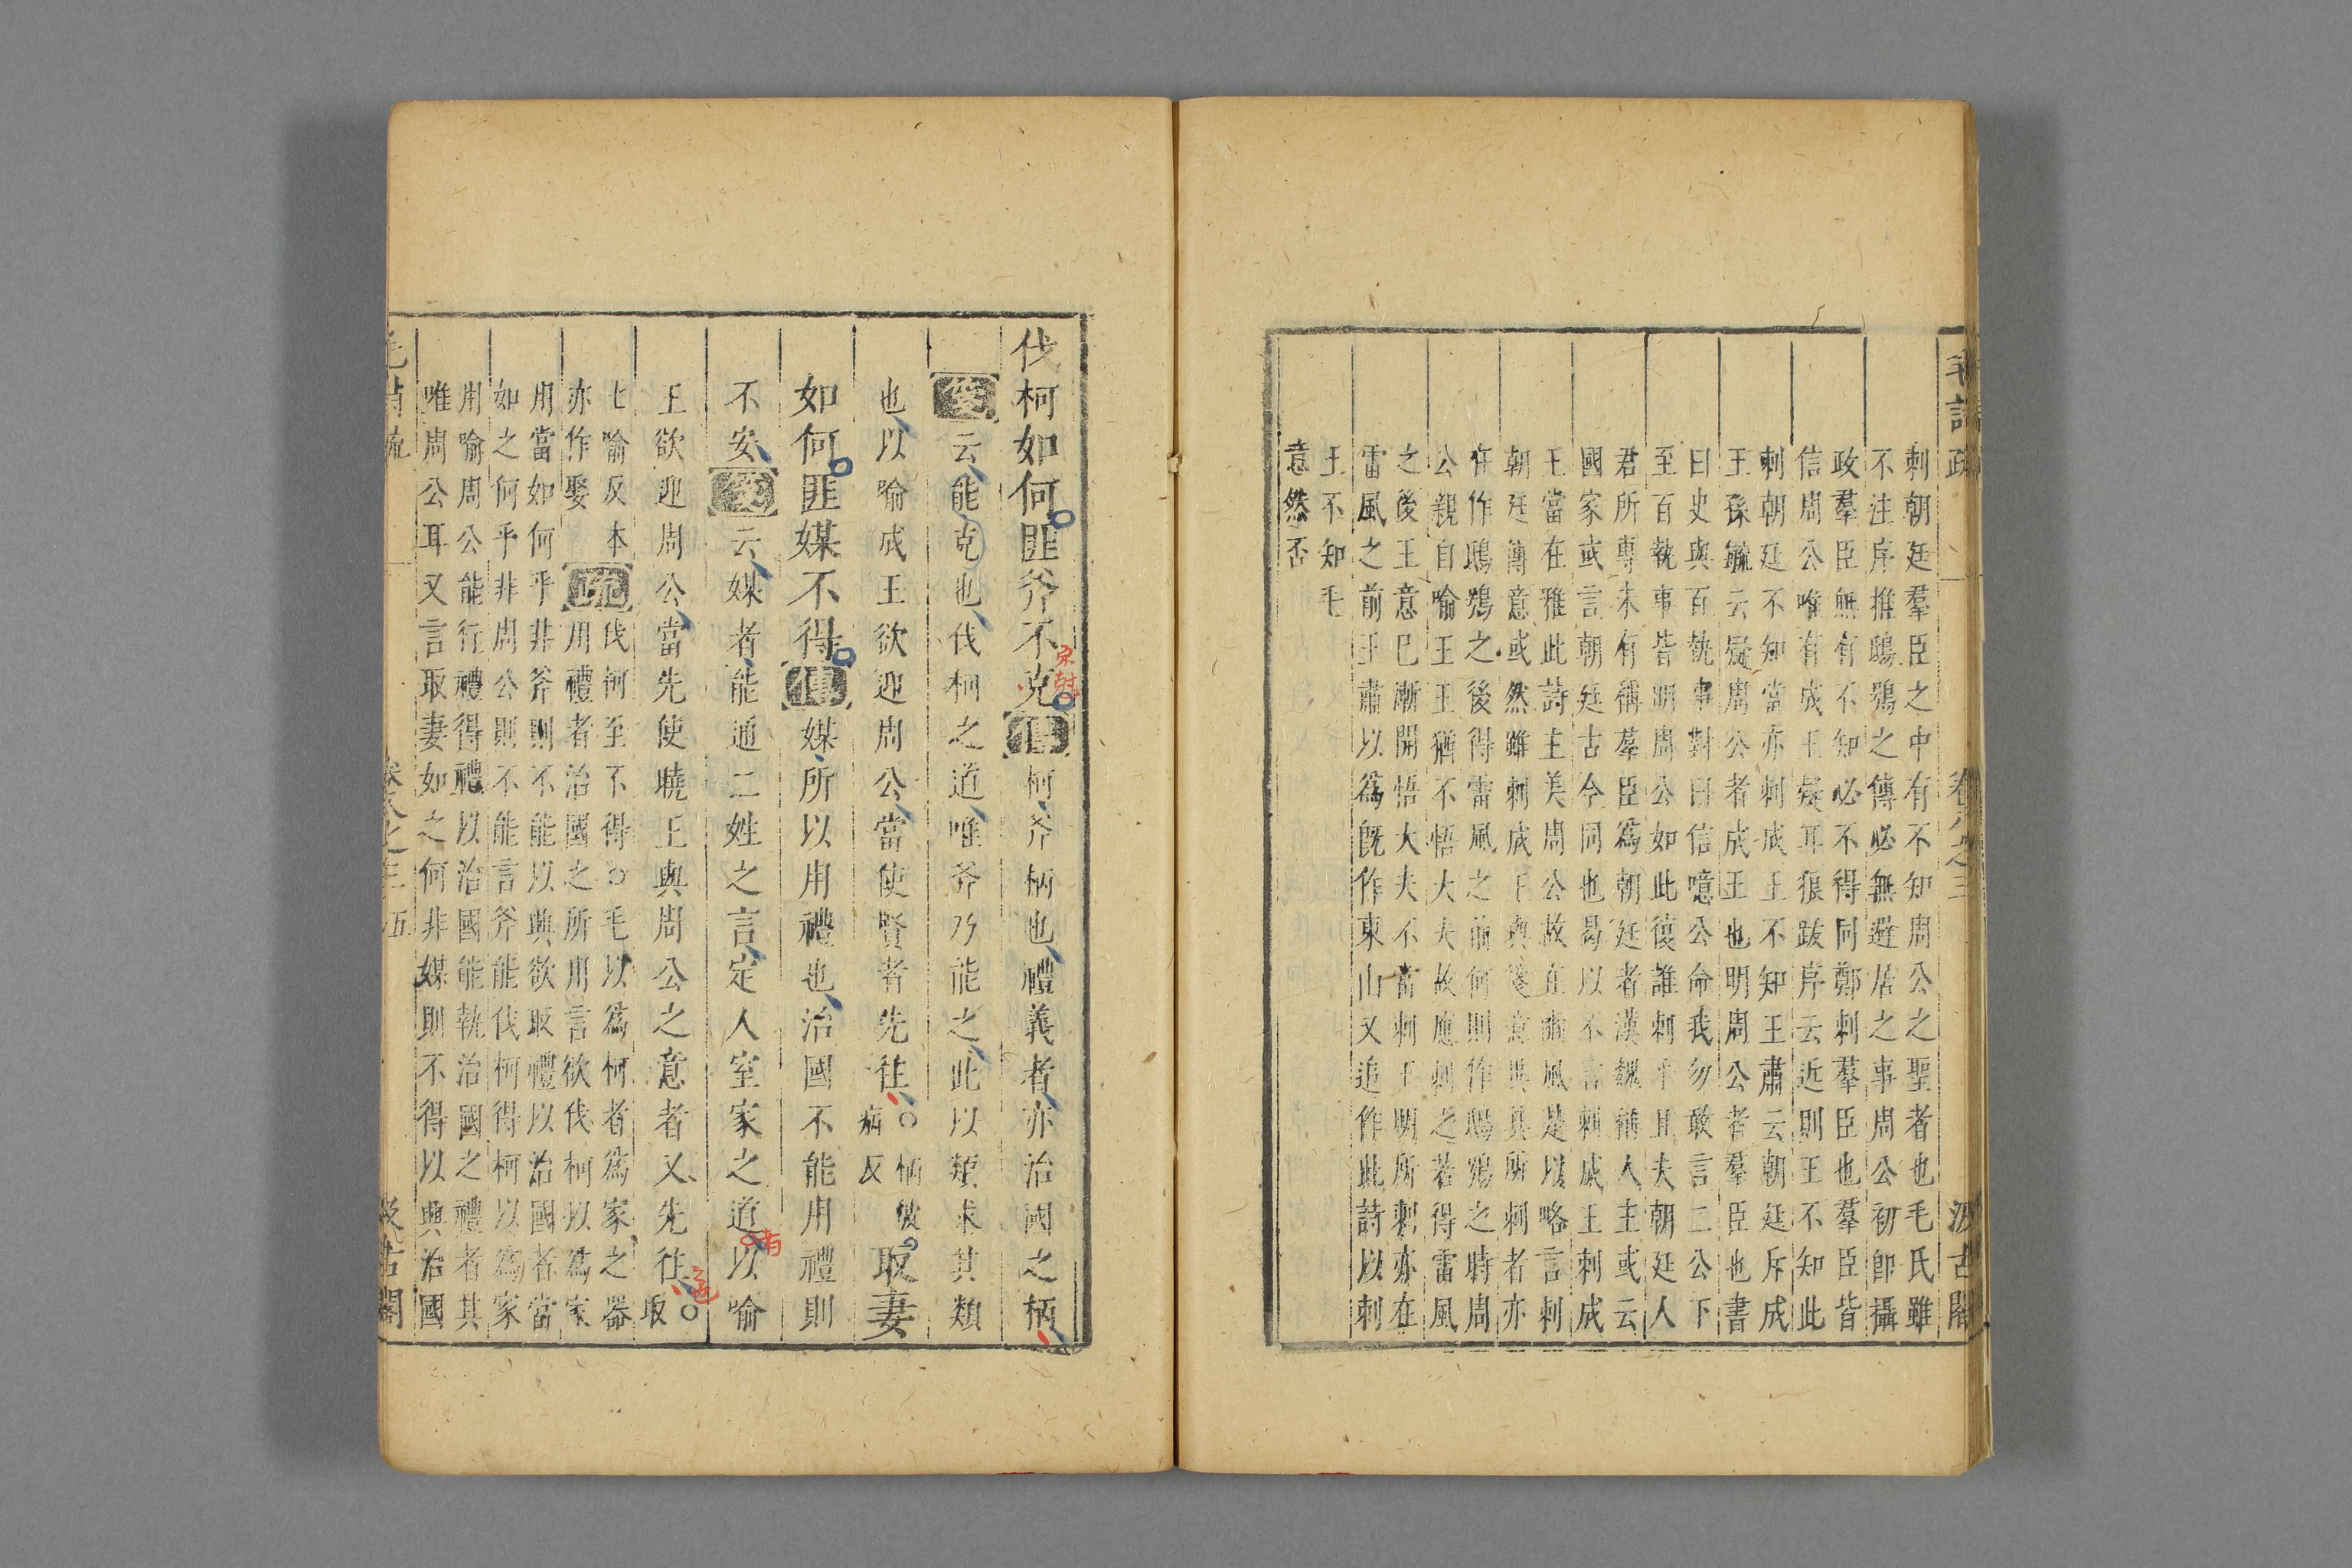 刺朝廷羣臣之中有不知周公之聖者也毛氏雖
不注序推鴟鴞之傳必無避居之事周公初卽攝
政羣臣無有不知必不得同鄭刺羣臣也羣臣皆
信周公唯有成王疑耳狼跋序云近則王不知此
刺朝廷不知當亦刺成王不知王肅云朝廷斥成
王孫毓云疑周公者成王也明周公者羣臣也書
曰史與百執事對曰信噫公命我勿敢言二公下
至百執事皆明周公如此復誰刺乎且夫朝廷人
君所專未有稱羣臣爲朝廷者漢魏稱人主或云
國家或言朝廷古今同也曷以不言刺成王刺成
王當在雅此詩主美周公故在豳風是以略言刺
朝廷傳意或然雖刺成王與箋意異其所刺者亦
在作鴟鴞之後得雷風之前何則作鴟鴞之時周
公親自喻王王猶不悟大夫故應刺之若得雷風
之後王意巳漸開悟大夫不當刺王明所刺亦在
雷風之前王肅以爲旣作東山又追作此詩以刺
王不知毛
意然否
毛詩疏 卷八之三 汲古閣
伐柯如何匪斧不克傳柯斧柄也禮義者亦治國之柄
箋云能克也伐柯之道唯斧乃能之此以類求其類
也以喻成王欲迎周公當使賢者先往○柄彼病反取妻
如何匪媒不得傳媒所以用禮也治國不能用禮則
不安箋云媒者能通二姓之言定人室家之道以喻
王欲迎周公當先使曉王與周公之意者又先往○取
七喻反本亦作娶疏伐柯至不得○毛以爲柯者爲家之器
用禮者治國之所用言欲伐柯以爲家
用當如何乎非斧則不能以與欲取禮以治國者當
如之何乎非周公則不能言斧能伐柯得柯以爲家
用喻周公能行禮得禮以治國能執治國之禮者其
唯周公耳又言取妻如之何非媒則不得以興治國
毛詩疏 卷八之三 五 汲古閣